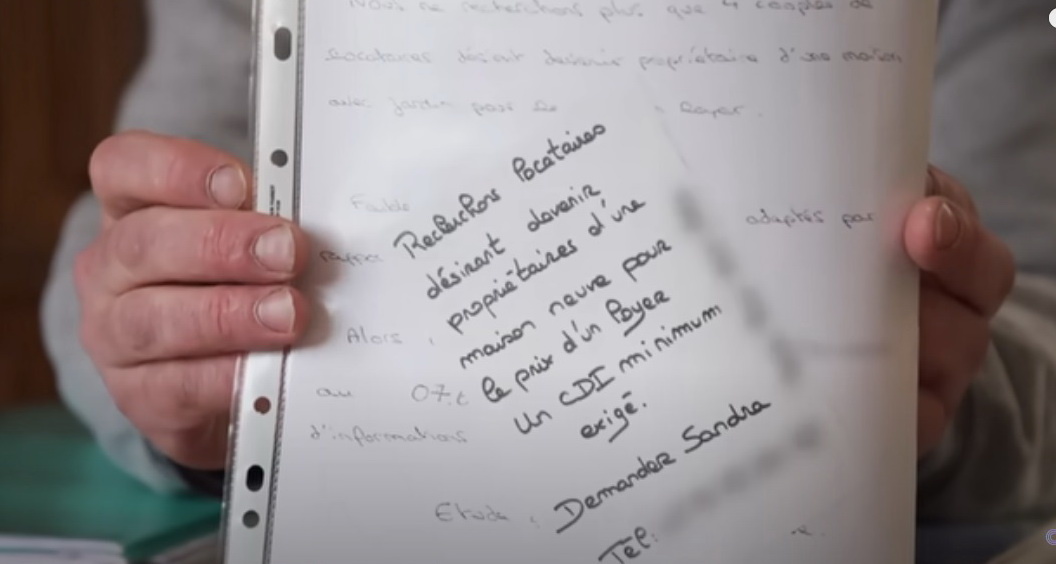 Nous ne recherchons plus que 4 couples de
locataires désirant devenir propriétaire d'une maison
avec jardin pour le loyer.
Faible
adaptés par
Alors,
au 07.
d'informations
Etude,
Recherchons locataires
désirant devenir
propriétaires d'une
maison neuve pour
le prix d'un loyer
Un CDI minimum
exigé.
Demander Sandra
Tél: